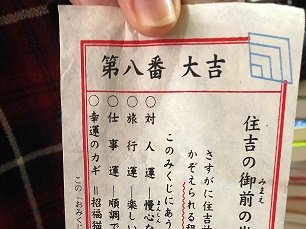 第八番 大吉
住吉の御前の
みまえ
さすがに住吉
かぞえられる程
このみくじにあう
○対人運＝慢心な
まんしん
○旅行運＝楽しい
○仕事運＝順調で
○幸運のカギ＝招福猫
この「おみくじ